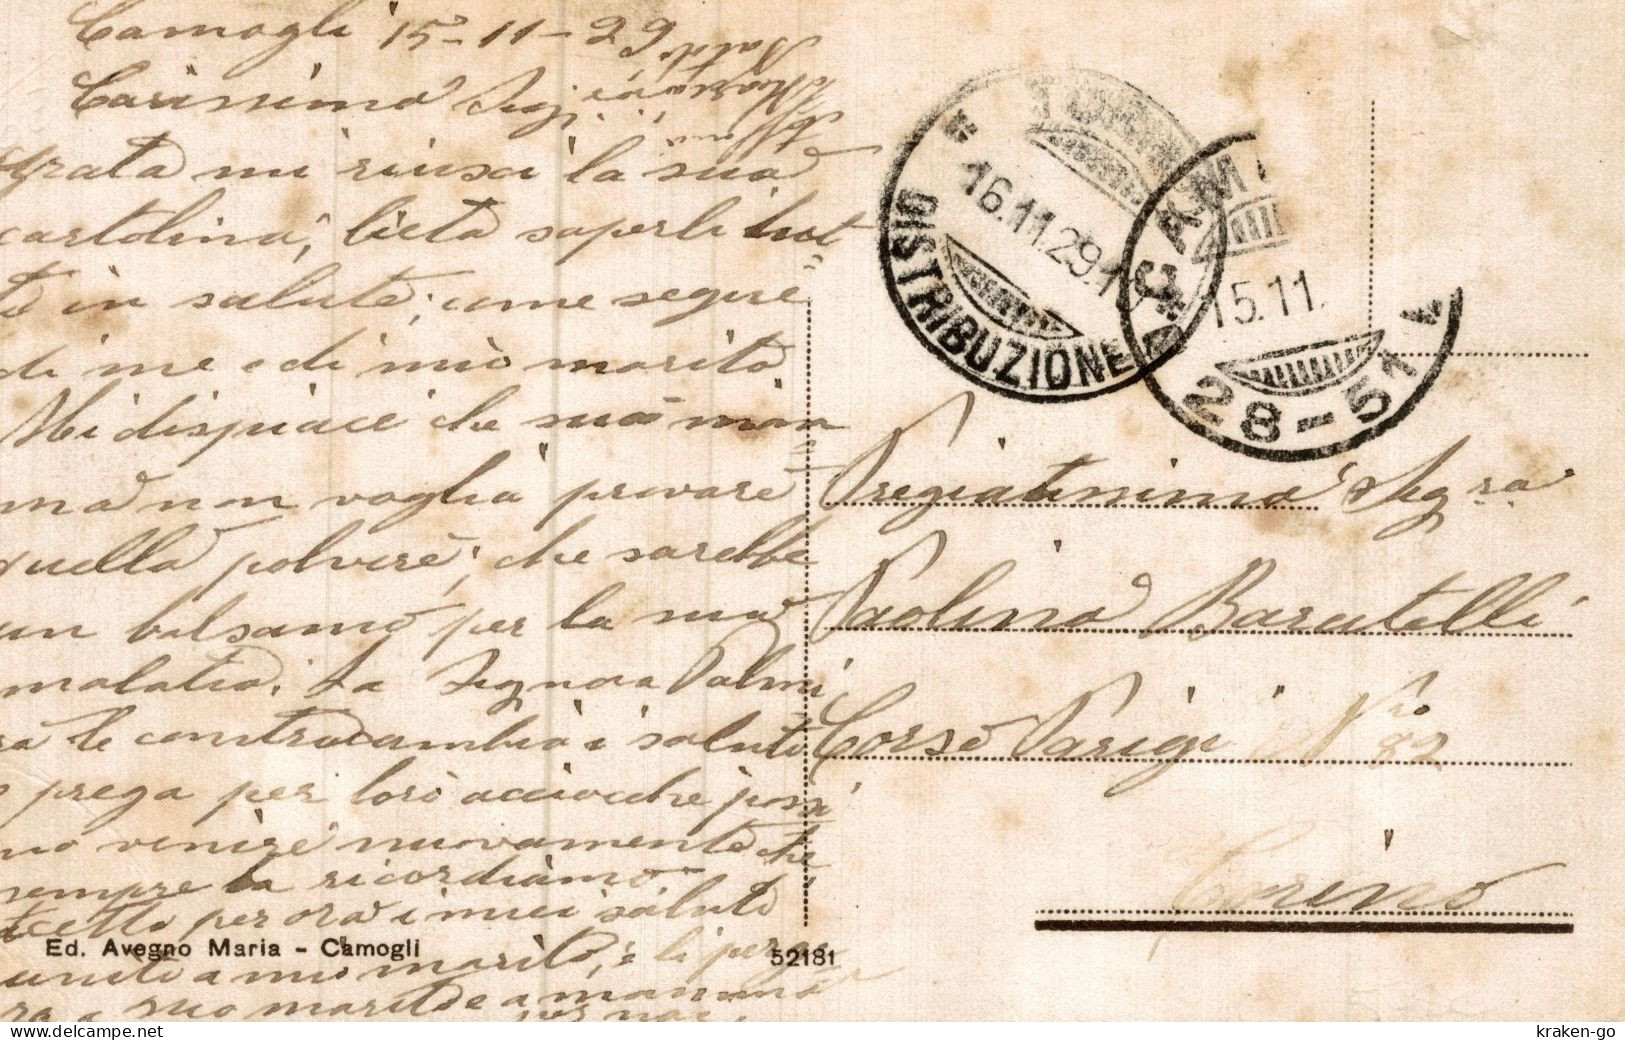 Camogli 15-11-29
Carissima Sig.
grata mi riuscì la sua
cartolina, lieta saperli tut
te in salute, come segue
di me e di mio marito
Mi dispiace che sua mam
ma non voglia provare
quella polvere, che sarebbe
un balsamo per la sua
malatia. La Signora Palmi
ra le contracambia i saluti
e prega per loro acciocchè possi
no venire nuovamente che
sempre la ricordiamo
accetti per ora i miei saluti
uniti a mio marito, e li porge
ra a suo marito e a mamma
per noi.
Ed. Avegno Maria - Camogli
52181
16.11.29.1
DISTRIBUZIONE
CAM
15.11.
28-51
Pregiatissima Sigra
Paolina Baratelli
Corso Parigi No 82
Torino
kraken-go
delcampe.net